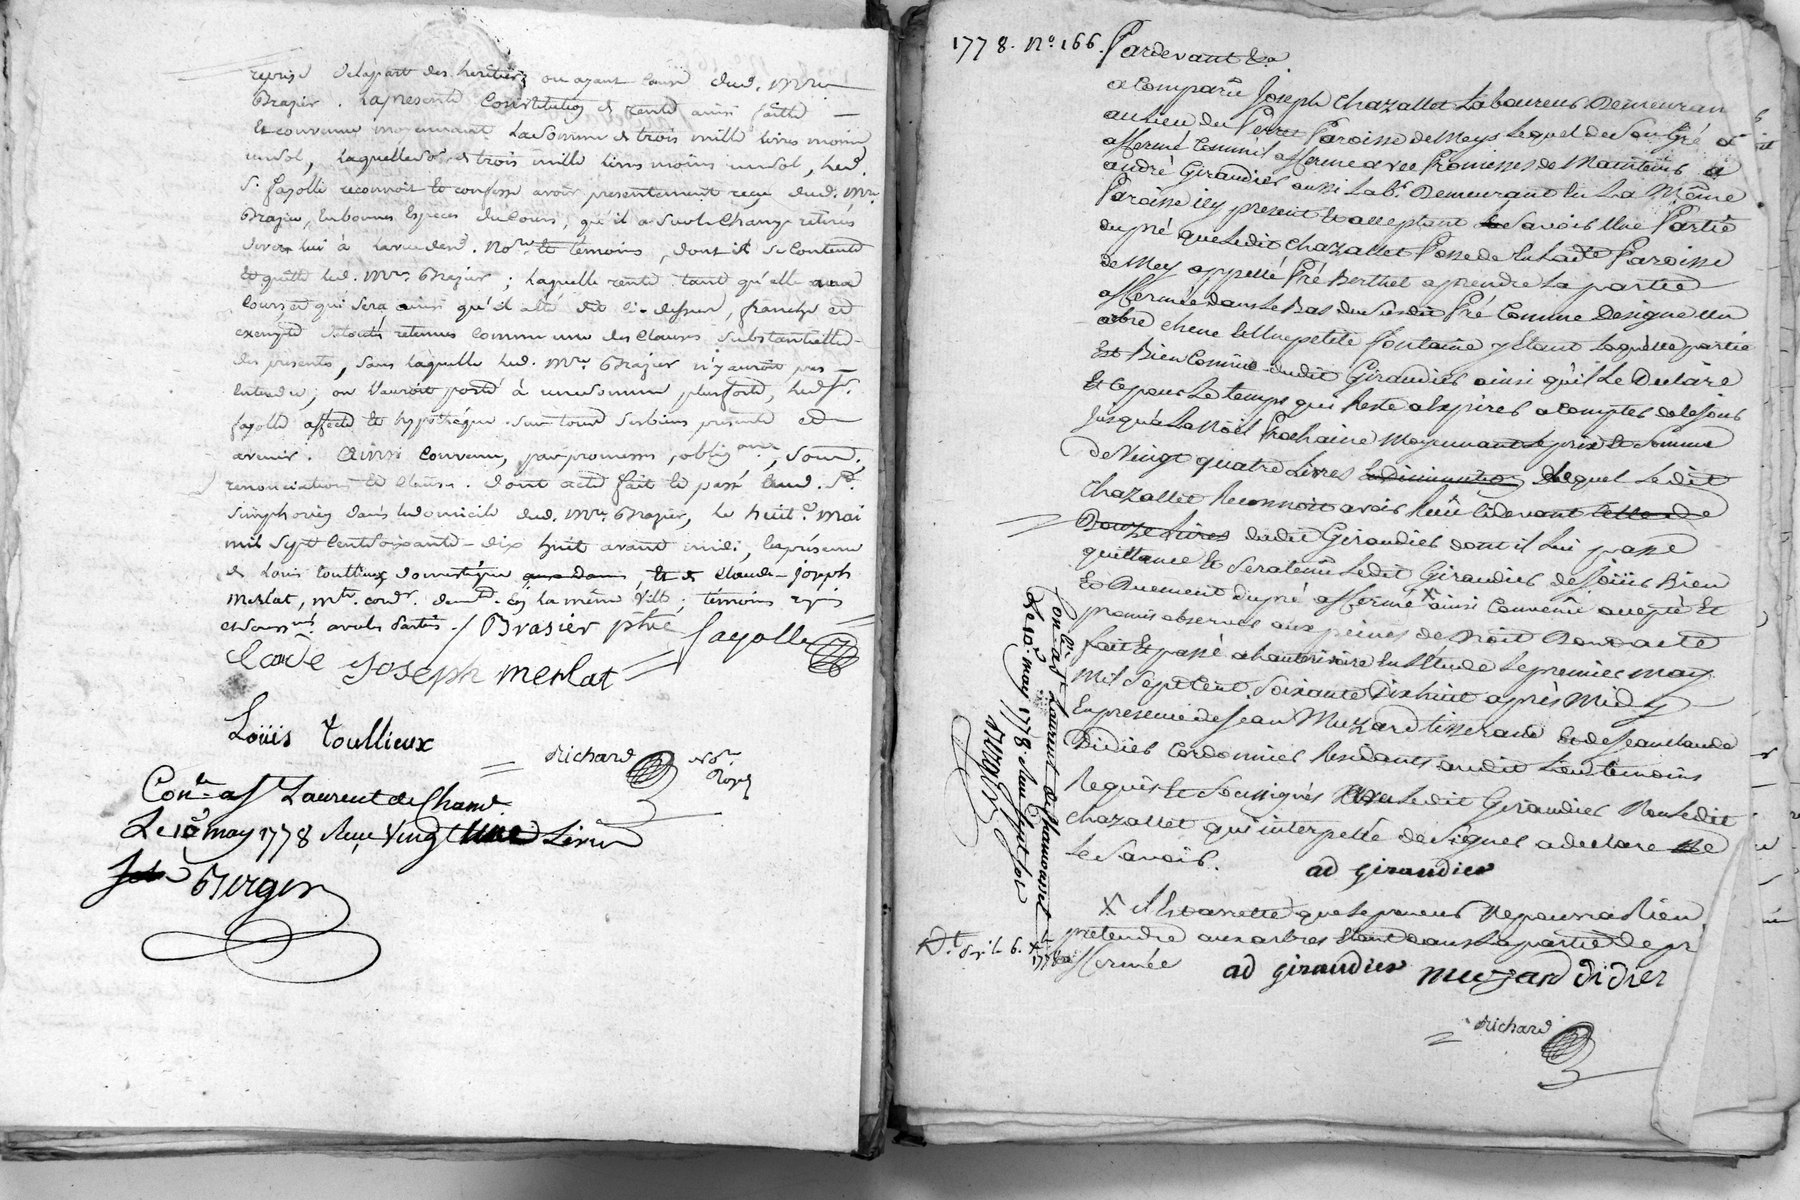 reprise de la part des heritiers ou ayant cause dud. Mre
Brazier. La presente Constitution de rente ainsi faitte
et convenue moyennant la somme de trois mille livres moins
un sol, laquelle so.e de trois mille livres moins un sol, led.
S. fayolle reconnoit et confesse avoir presentement reçu dud. Mre
Brazier, en bonnes Especes du Cours, qu'il a sur le Champ retirés
devers lui à la vue desd. No.res et témoins, dont il se Contente
et quitte led. Mre Brazier ; laquelle rente tant qu'elle aura
Cours et qui sera ainsi qu'il a été dit ci-dessus, franche et
exempte de toutes retenues comme une des Clauses substantielles
des presentes, sans laquelle led. Mre Brazier n'y auroit pas
entendu, ou l'auroit porté à une somme plus forte, led. Sr.
fayolle affecte et hypothéque sur tous ses biens presents et
avenir. Ainsi Convenu, par promesses, oblig.ons, soum.
renonciations et clauses. dont acte fait et passé aud. St.
Simphorien dans le domicile dud. Mre Brazier, le huit.e mai
mil sept Cent soixante-dix huit avant midi, les présence
de Louis toullieux domestique et de Claude-joseph
Merlat, Mtre cord.r demt. En la même Ville, témoins requis
et soussnés avec les Parties. / Brasier ptre fayolle
Clode Joseph merlat
Loüis toullieux
Richard No.re Royal
Con.lé a St Laurent de Cham.t
Le 10e may 1778 Reçu Vingt une Livres
Berger
1778. No. 166. Pardevant &a.
a Comparû Joseph Chazallet Laboureur Demeuran
au Lieu du Perret Paroisse de Meys Lequel de Son Gré a
affermé Comme il afferme avec Promesses de Maintenir a
andré Giraudier aussi Lab.r Demeurant En La Même
Paroisse icy present Et acceptant Savoir Une Partie
du pré que Ledit Chazallet Possede En Ladte Paroisse
de Mey appellé Pré Berthet a prendre La partie
affermée dans Le Bas du Susdit Pré Comme Designe un
arbre chene Et Une petite fontaine y Etant Laquelle partie
Est Bien Connue dudit Giraudier ainsi qu'il Le Declare
Et Ce pour Le temps qui Reste a Expirer a Compter de Ce Jour
Jusqu'a La Nöel Prochaine Moyennant Le prix Et Somme
de Vingt quatre Livres Lequel Ledit
Chazallet Reconnoit avoir Reçû Cidevant
Douze Livres dudit Giraudier dont il Lui passe
quittance Et Sera tenû Ledit Giraudier de Joüir Bien
Et Duement du pré affermé X ainsi Convenû accepté Et
promis observer aux peines de Droit Dont acte
fait Et passé a hauterivoire En L'Etude Le premier may
Mil Sept Cent Soixante Dix huit après Midy
En presence de Jean Muzard tisserand Et de Jean Claude
Didier Cordonnier Residants audit Lieu temoins
Requis Et Soussignés avec Ledit Giraudier Non Ledit
Chazallet qui interpellé de Signer a declaré ne
Le Savoir. ad giraudier
X il Est arretté que Le preneur Ne pourra Rien
pretendre aux arbres Etant dans La partie de pré
affermée ad giraudier Muzard didier
Richard
Con.lé a St Laurent de Chamousset
Le 10e may 1778 Reçu Sept sols
Berger